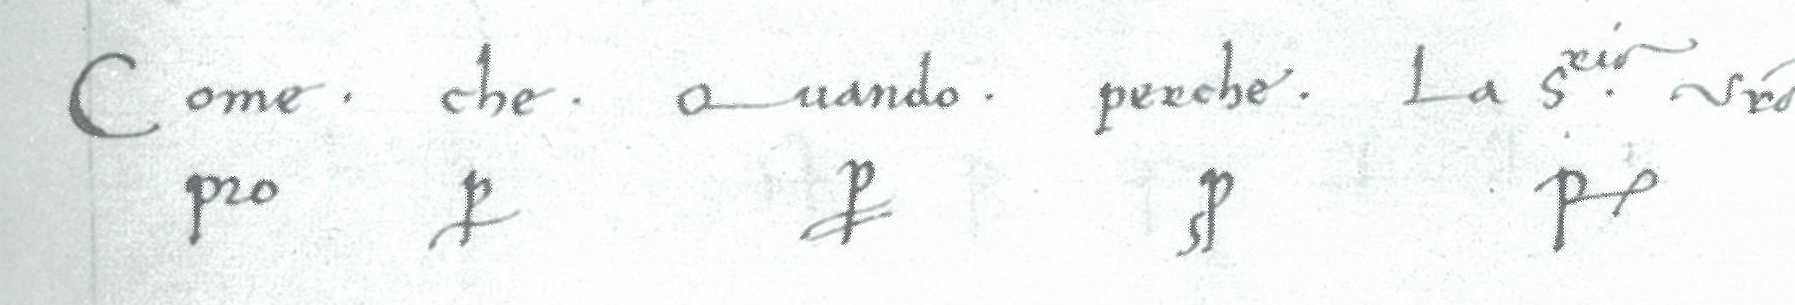 Come . che . Quando . perche . La S.
pro p p p p